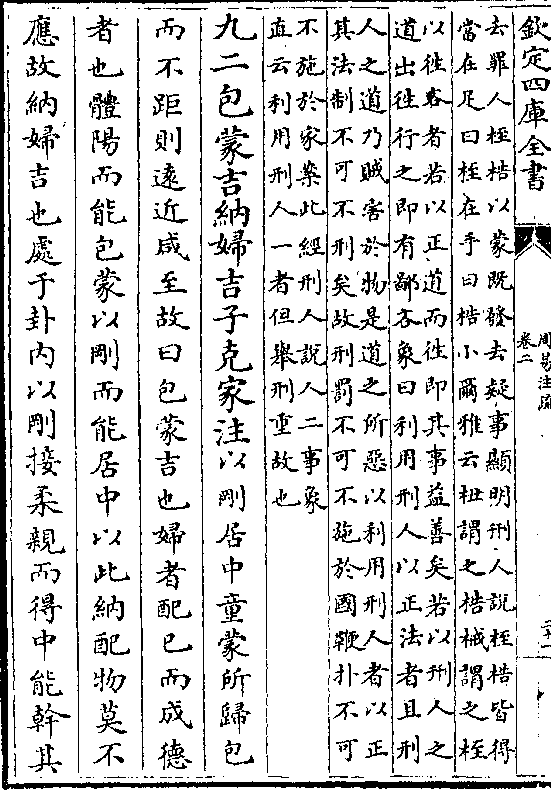 欽定四庫全書
周易注疏
卷二
去罪人桎梏以蒙既發去疑事顯明刑人說桎梏皆得
當在足曰桎在手曰梏小爾雅云杻謂之梏械謂之桎
以往吝者若以正道而往即其事益善矣若以刑人之
道出往行之即有鄙吝象曰利用刑人以正法者且刑
人之道乃賊害於物是道之所惡以利用刑人者以正
其法制不可不刑矣故刑罰不可不施於國鞭扑不可
不施於家案此經刑人說人二事象
直云利用刑人一者但舉刑重故也
九二包蒙吉納婦吉子克家注以剛居中童蒙所歸包
而不距則遠近咸至故曰包蒙吉也婦者配已而成德
者也體陽而能包蒙以剛而能居中以此納配物莫不
應故納婦吉也處于卦内以剛接柔親而得中能幹其